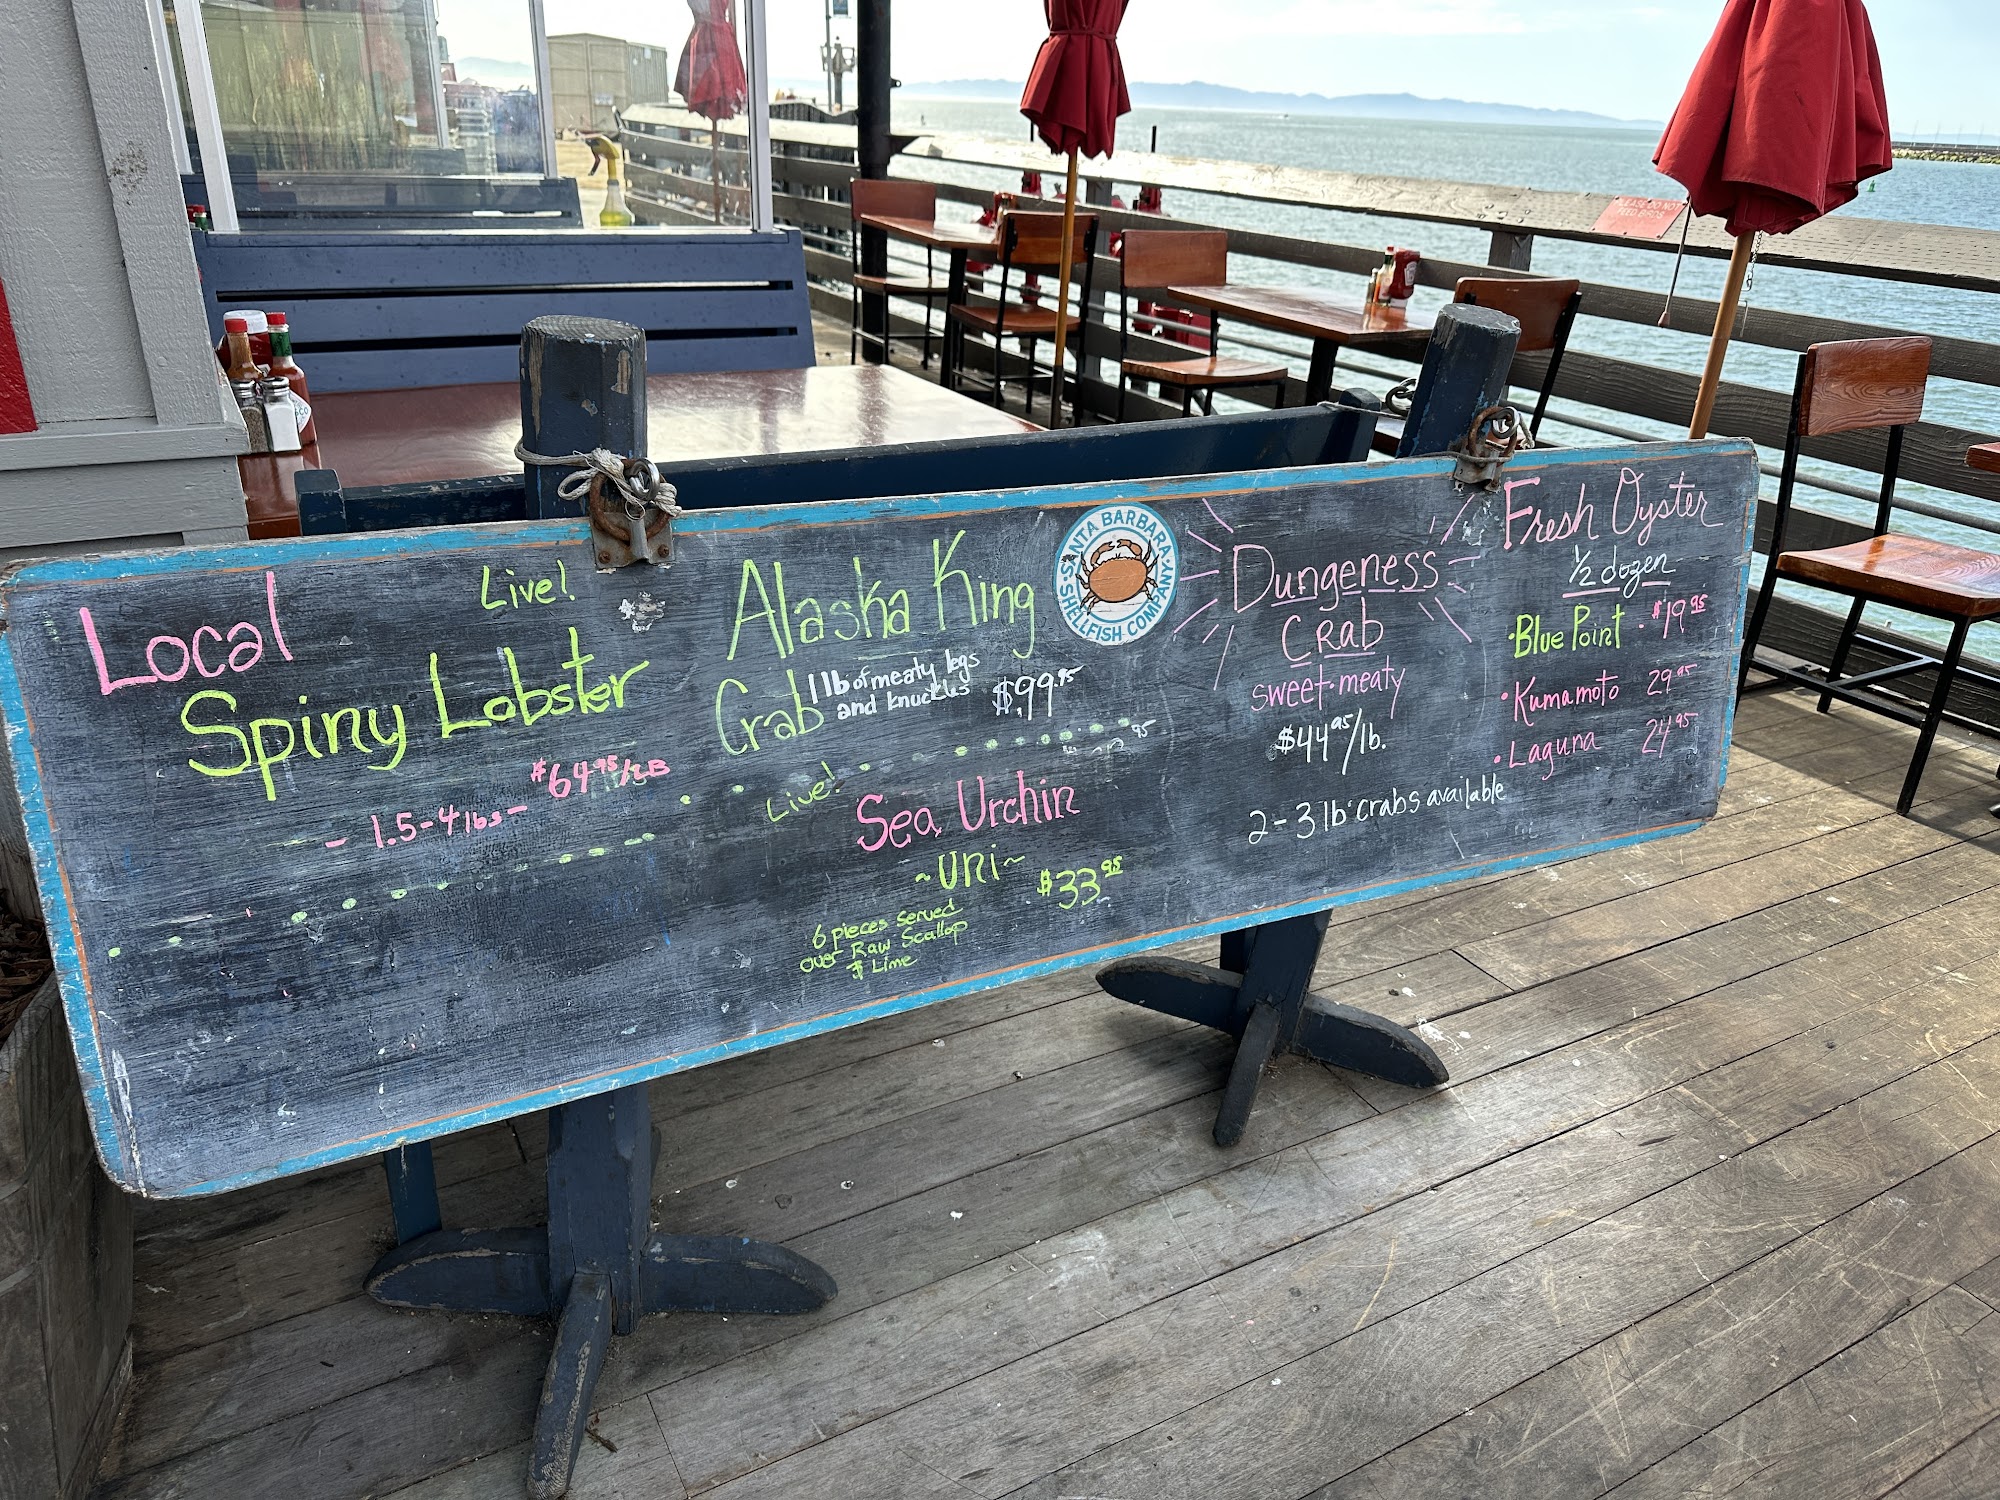 Local
Live!
Spiny Lobster
- 1.5-4 lbs - $64.95/LB
Alaska King
Crab
1 lb of meaty legs
and knuckles
$99.95
Live!
Sea Urchin
~Uni~
$33.95
6 pieces served
over Raw Scallop
& Lime
SANTA BARBARA
SHELLFISH COMPANY
Dungeness
Crab
sweet·meaty
$44.95/lb.
2-3 lb crabs available
Fresh Oyster
1/2 dozen
·Blue Point · $19.95
·Kumamoto 29.95
·Laguna 24.95
PLEASE DO NOT
FEED BIRDS